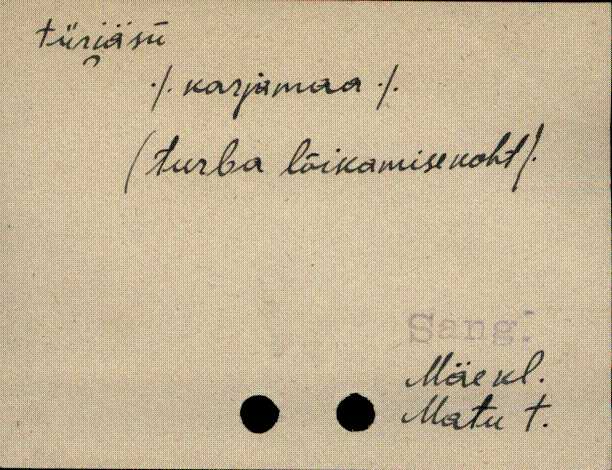 türjäsü
·/. karjamaa ·/.
(turba lõikamisekoht/.
Sang.
Mäekl.
Matu t.